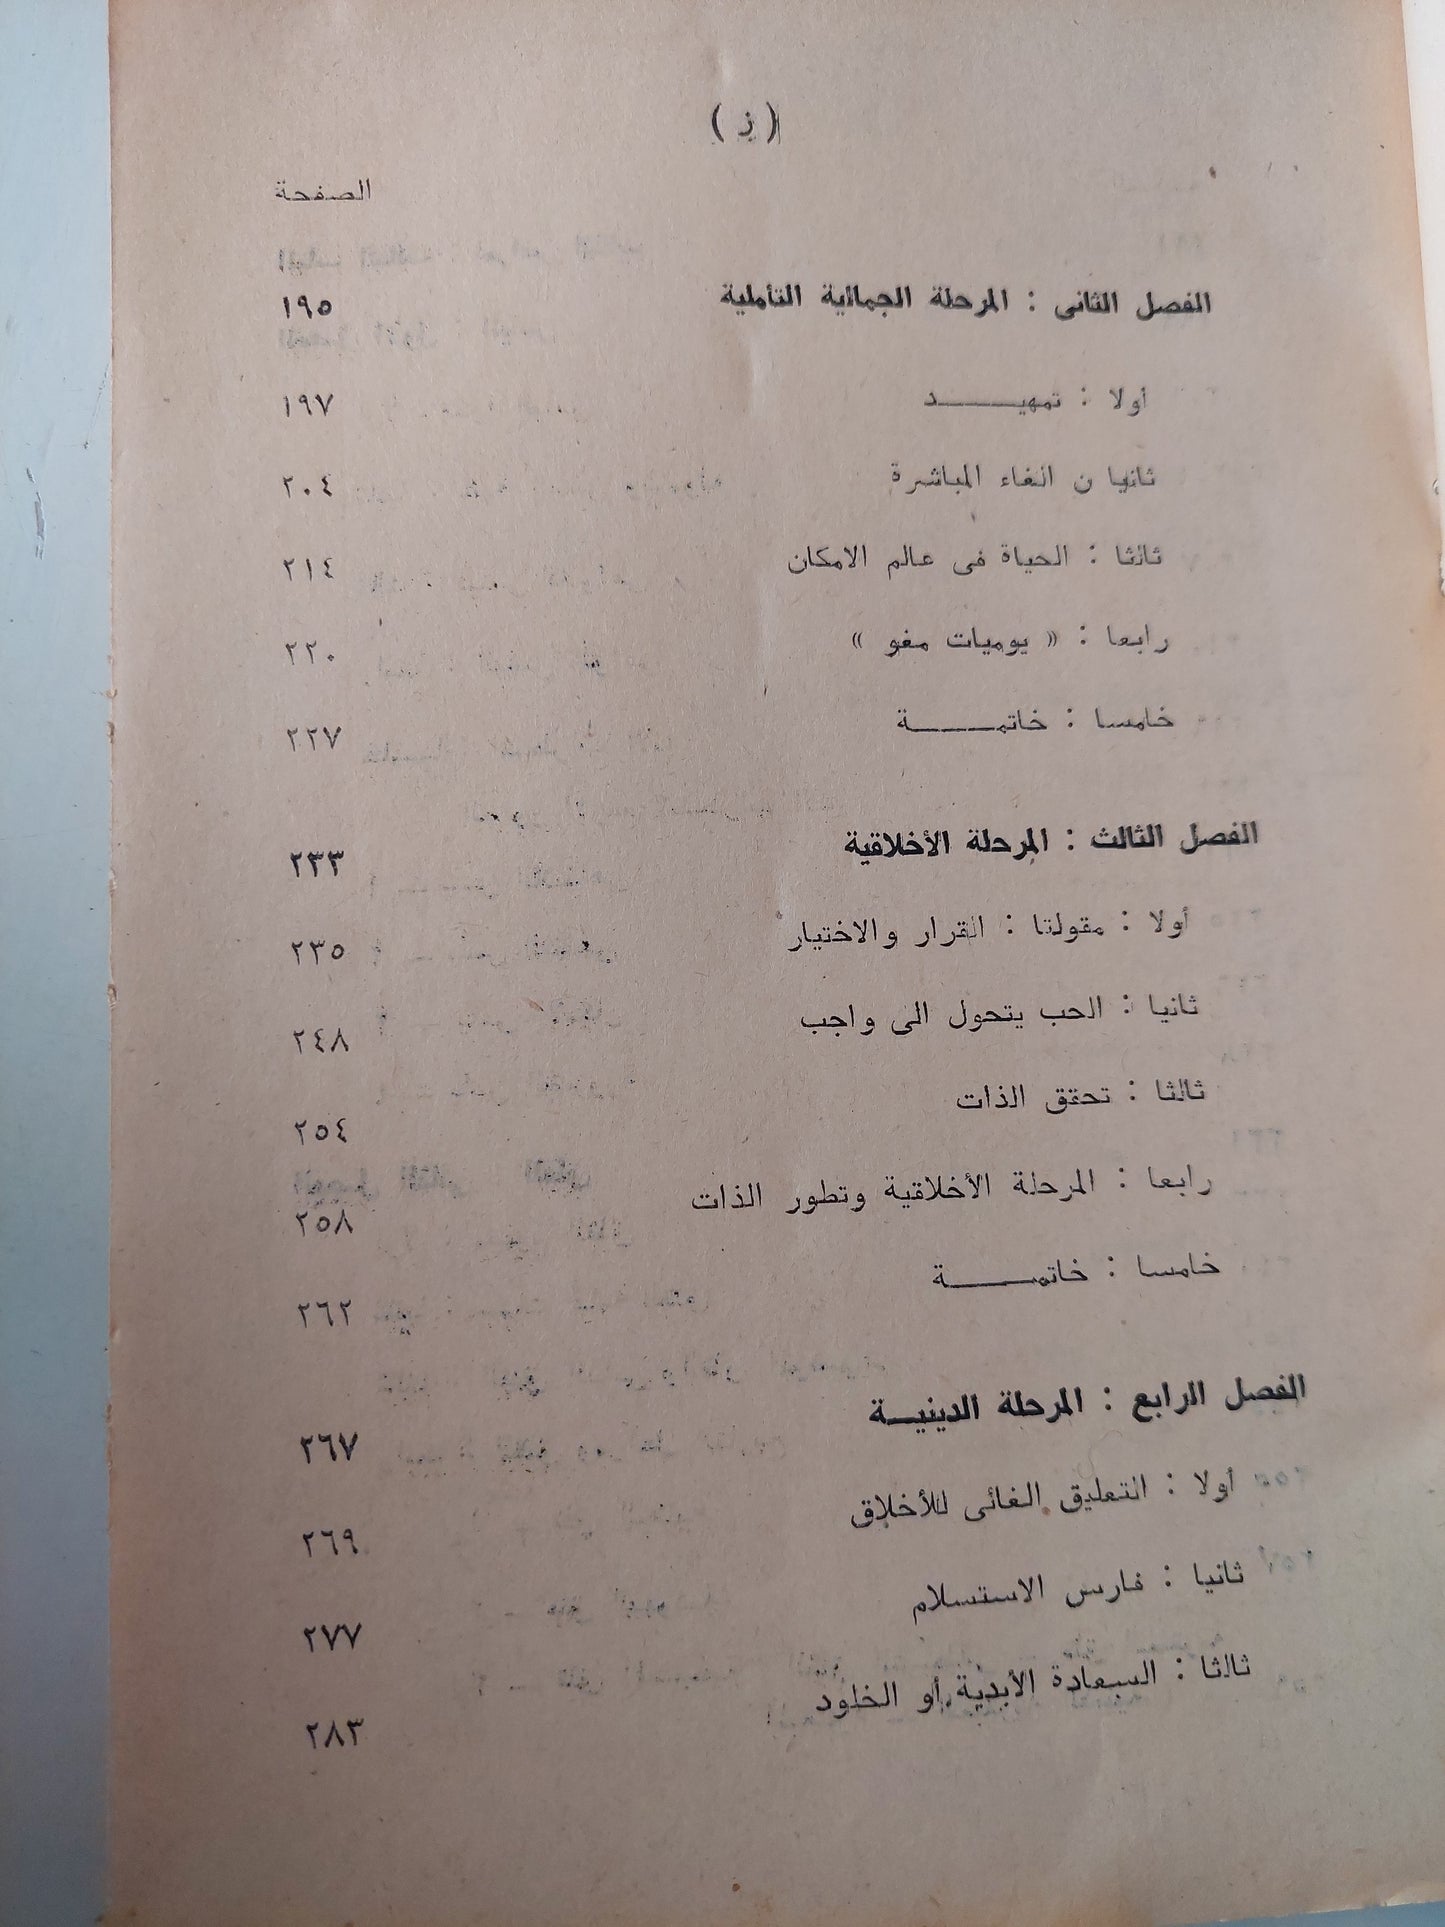 ( ز )
الصفحة
الفصل الثانى : المرحلة الجمالية التأملية ١٩٥
أولا : تمهيـــــد ١٩٧
ثانيا ن الغاء المباشرة ٢٠٤
ثالثا : الحياة فى عالم الامكان ٢١٤
رابعا : « يوميات مغو » ٢٢٠
خامسا : خاتمـــــة ٢٢٧
الفصل الثالث : المرحلة الأخلاقية ٢٣٣
أولا : مقولتا : القرار والاختيار ٢٣٥
ثانيا : الحب يتحول الى واجب ٢٤٨
ثالثا : تحقق الذات ٢٥٤
رابعا : المرحلة الأخلاقية وتطور الذات ٢٥٨
خامسا : خاتمـــــة ٢٦٢
الفصل الرابع : المرحلة الدينيـــة ٢٦٧
أولا : التعليق الغائى للأخلاق ٢٦٩
ثانيا : فارس الاستسلام ٢٧٧
ثالثا : السعادة الأبدية أو الخلود ٢٨٣